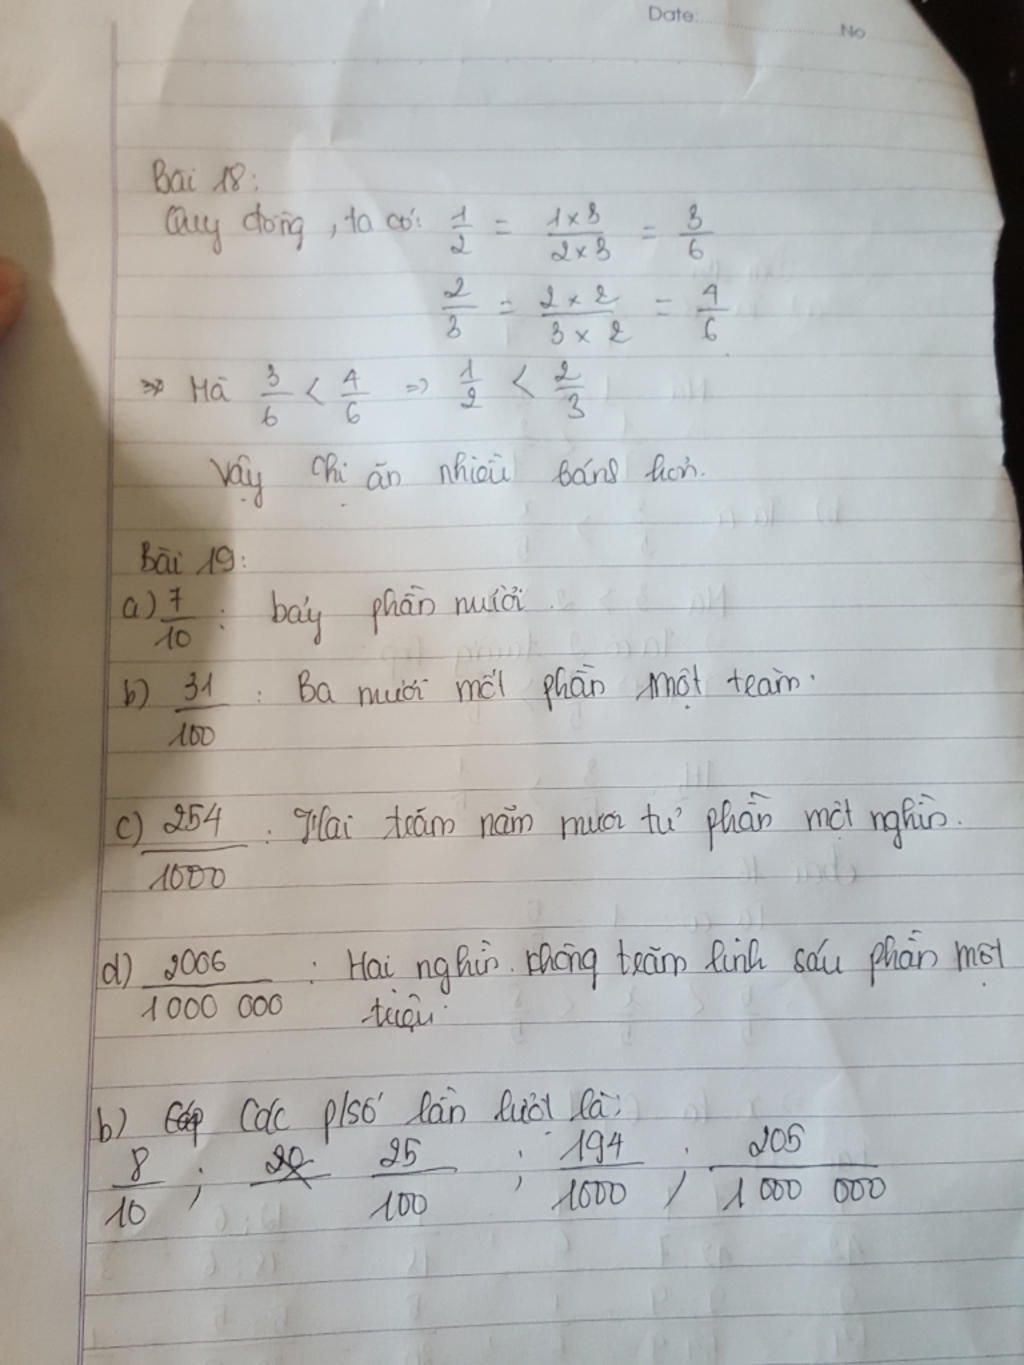 Date: No
Bài 18:
Quy đồng, ta có: 1/2 = 1×3/2×3 = 3/6
2/3 = 2×2/3×2 = 4/6
=> Mà 3/6 < 4/6 => 1/2 < 2/3
Vậy Chi ăn nhiều bánh hơn.
Bài 19:
a) 7/10 : bảy phần mười.
b) 31/100 : Ba mươi mốt phần một trăm.
c) 254/1000 : Hai trăm năm mươi tư phần một nghìn.
d) 2006/1000 000 : Hai nghìn không trăm linh sáu phần một
triệu.
b) Các p/số lần lượt là:
8/10 ; 25/100 ; 194/1000 ; 205/1 000 000